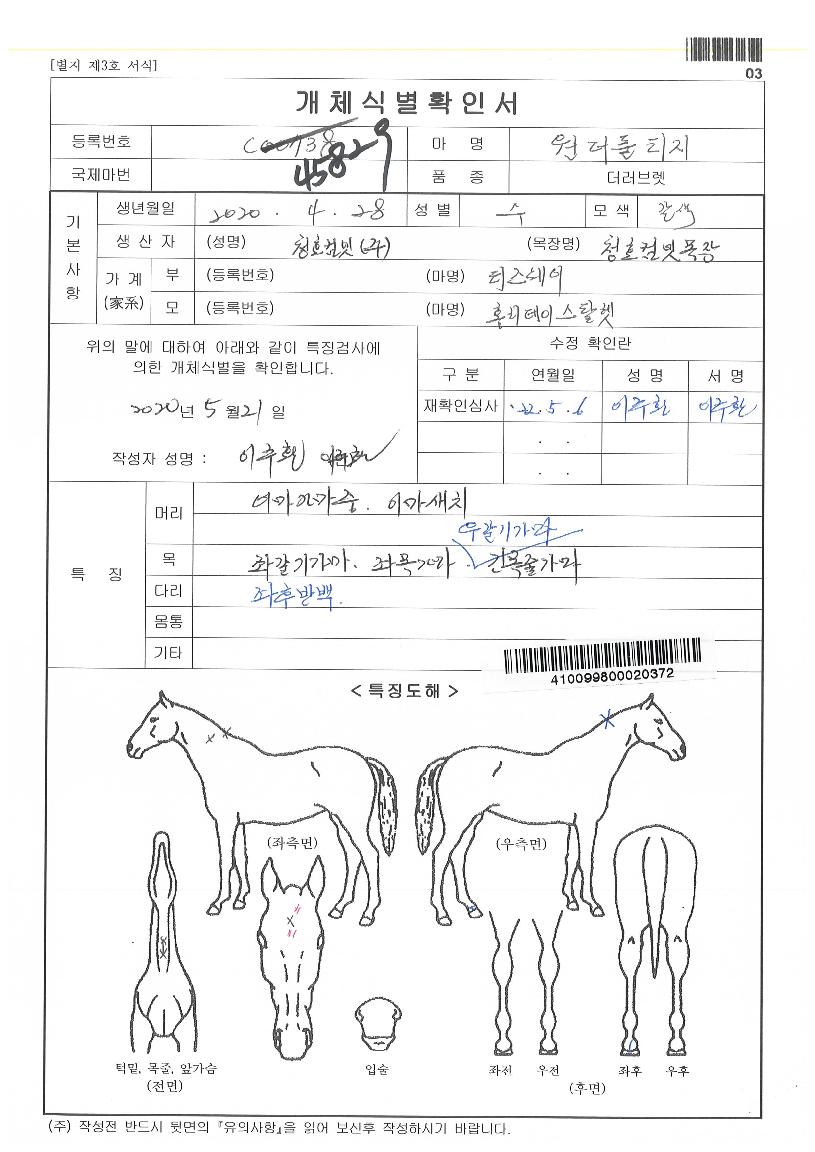 [별지 제3호 서식]
03
개체식별확인서
등록번호 45829 마 명 원더풀티지
국제마번 품 종 더러브렛
기본사항
생년월일 2020 . 4 . 28 성 별 수 모 색 갈색
생 산 자 (성명) 청호컴넷(주) (목장명) 청호컴넷목장
가 계 (家系) 부 (등록번호) (마명) 티즈쉐이
모 (등록번호) (마명)
위의 말에 대하여 아래와 같이 특징검사에
의한 개체식별을 확인합니다.
2020년 5 월 21 일
작성자 성명 : 이주환 이주환
수정 확인란
구 분 연월일 성 명 서 명
재확인심사 22. 5. 6 이주환 이주환
. .
. .
특 징
머리 이마새치
우갈기가마
목 좌갈기가마. 좌목가마. 긴목줄가마
다리 좌후반백.
몸통
기타
410099800020372
< 특징도해 >
(좌측면) (우측면)
턱밑, 목줄, 앞가슴
(전면)
입술
좌전 우전 좌후 우후
(후면)
(주) 작성전 반드시 뒷면의 『유의사항』을 읽어 보신후 작성하시기 바랍니다.